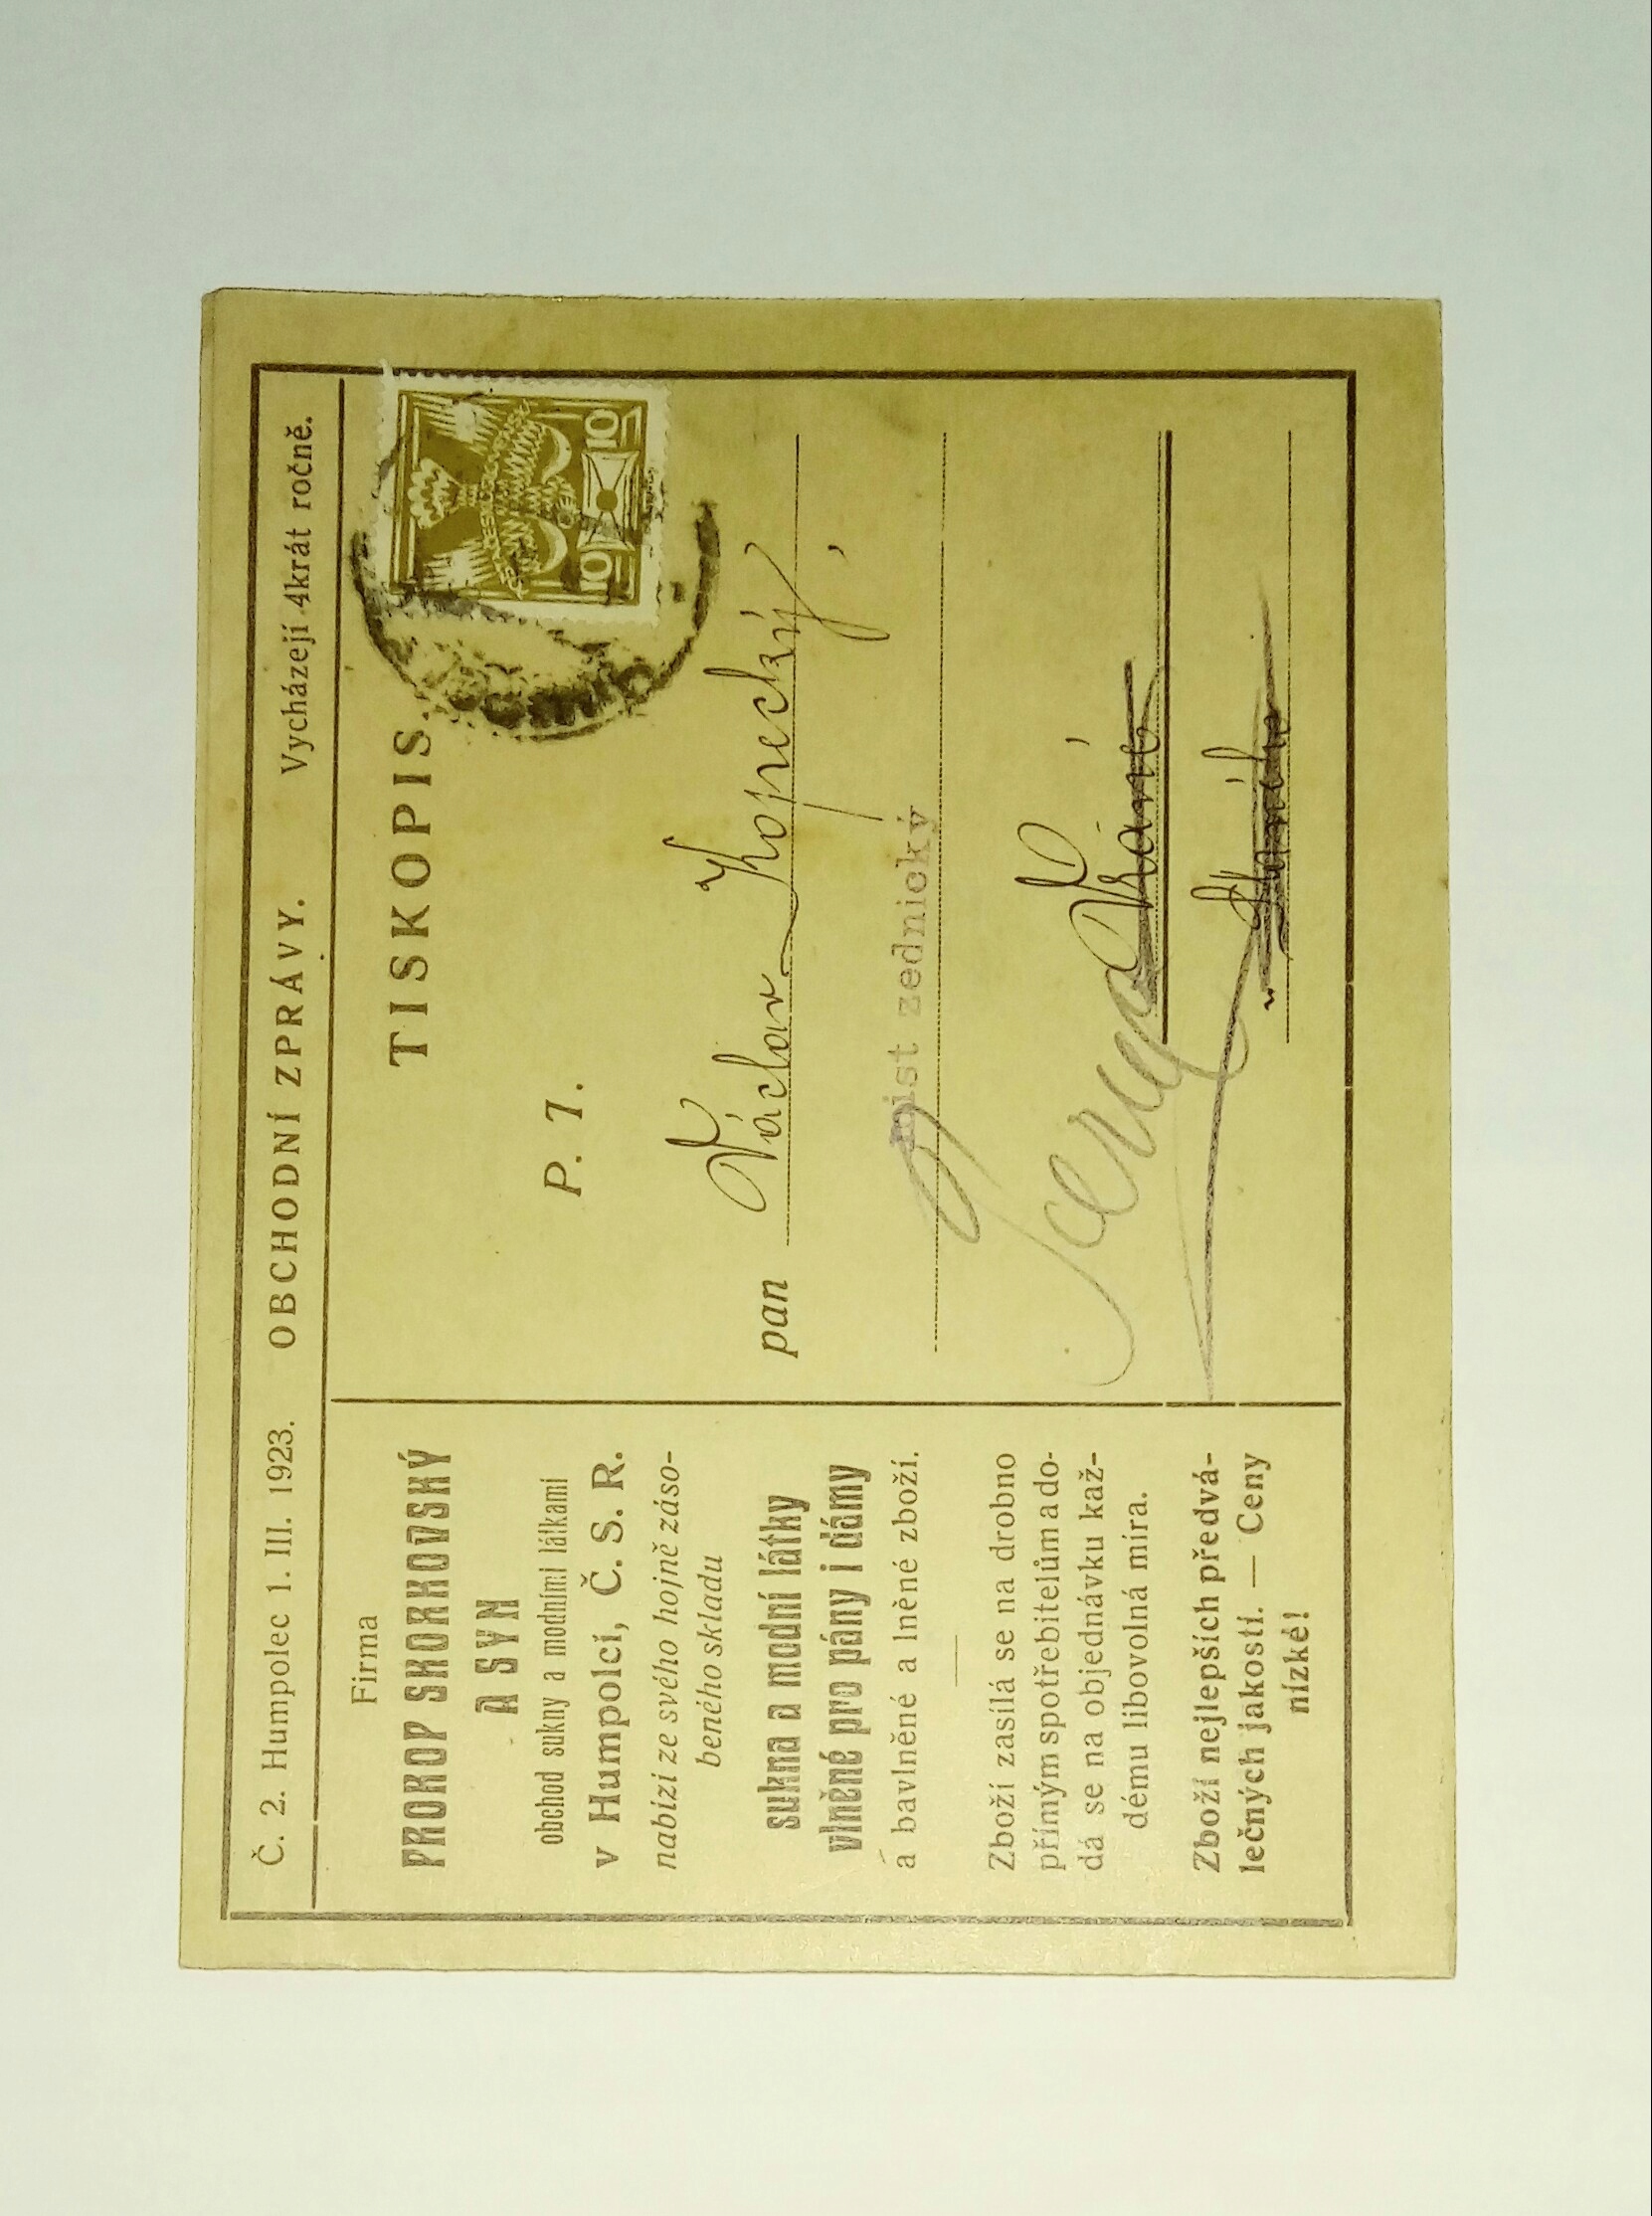 Č. 2. Humpolec 1. III. 1923. OBCHODNÍ ZPRÁVY. Vycházejí 4krát ročně.
Firma
PROKOP SKORKOVSKÝ
A SYN
obchod sukny a modními látkami
v Humpolci, Č. S. R.
nabízí ze svého hojně záso-
beného skladu
sukna a modní látky
vlněné pro pány i dámy
a bavlněné a lněné zboží.
Zboží zasílá se na drobno
přímým spotřebitelům a do-
dá se na objednávku kaž-
dému libovolná míra.
Zboží nejlepších předvá-
lečných jakostí. — Ceny
nízké!
TISKOPIS.
10 10
P. T.
pan Václav Kopecký,
mist zednický